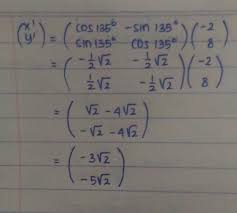 (x' y') = (cos 135° -sin 135° sin 135° cos 135°) (-2 8)
= (-½√2 -½√2 ½√2 -½√2) (-2 8)
= (√2 - 4√2 -√2 - 4√2)
= (-3√2 -5√2)